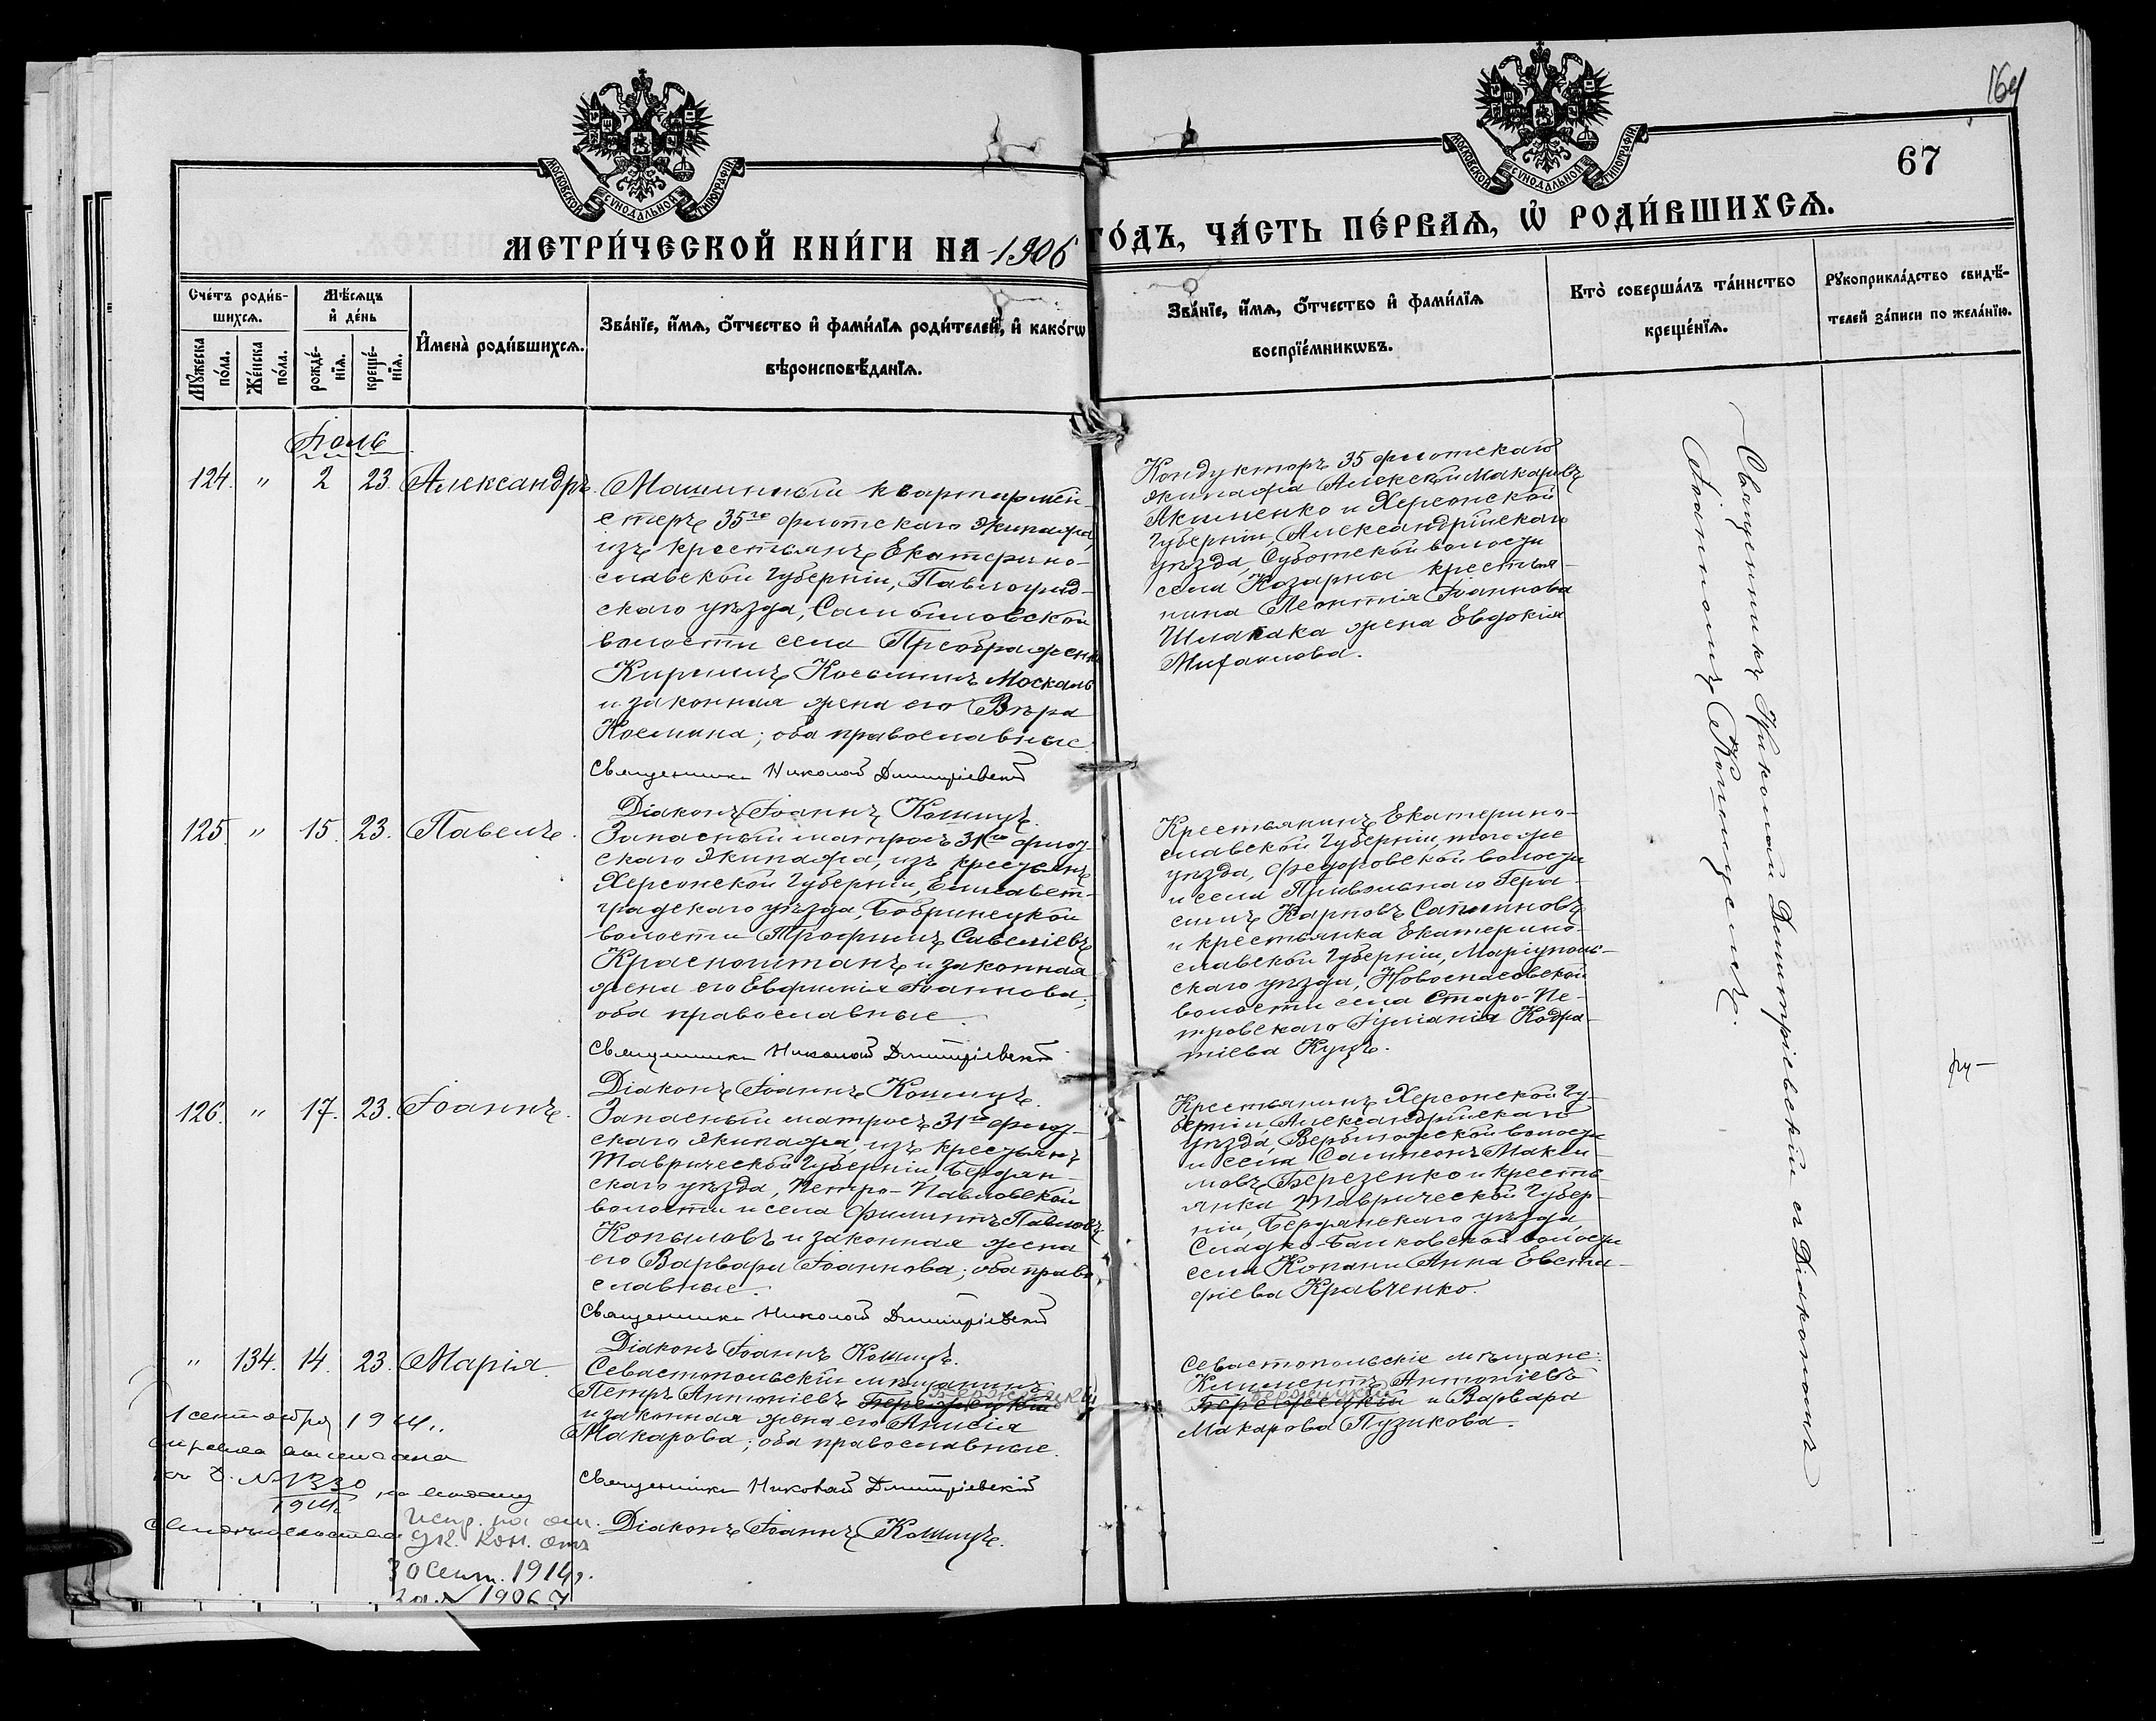 164
67
МОСКОВСКОЙ СУНОДАЛЬНОЙ ТИПОГРАФІИ
МОСКОВСКОЙ СУНОДАЛЬНОЙ ТИПОГРАФІИ
МЕТРИ́ЧЕСКОЙ КНИ́ГИ НА 1906 ГО́ДЪ, ЧА́СТЬ ПЕ́РВАѦ, Ѡ҆ РОДИ́ВШИХСѦ.
Сче́тъ роди́в-
шихсѧ.
Мꙋ́жеска по́ла.
Же́нска по́ла.
Мѣ́сѧцъ и҆ де́нь
рожде́-нїѧ.
креще́-нїѧ.
И҆мена̀ роди́вшихсѧ.
Зва́нїе, и҆́мѧ, ѻ҆́тчество и҆ фами́лїѧ роди́телей, и҆ како́гѡ
вѣроисповѣ́данїѧ.
Зва́нїе, и҆́мѧ, ѻ҆́тчество и҆ фами́лїѧ
воспрїе́мникѡвъ.
Кто̀ соверша́лъ та́инство
креще́нїѧ.
Рꙋкоприкла́дство свидѣ́-
телей за́писи по жела́нїю.
Іюль
124. " 2 23. Александръ.
Машинный квартирмей-
стеръ 35го флотскаго экипажа,
изъ крестьянъ Екатерино-
славской Губерніи, Павлоград-
скаго уѣзда,
волости села Преображенки
Кириллъ Косьминъ Москаль
и законная жена его Вѣра
Космина; оба православные.
Священникъ Николай Димитріевскій
Діаконъ Іоаннъ Кошицъ.
Кондукторъ 35 флотскаго
экипажа Алексѣй Макаровъ
Акименко и Херсонской
Губерніи, Александрійскаго
уѣзда, Суботской волости
села Козарны крестья-
нина Леонтія Іоаннова
жена Евдокія
Михаилова.
Священникъ Николай Димитріевскій съ Діакономъ
Іоанномъ Кошицемъ.
125. " 15. 23. Павелъ.
Запасный матросъ 31го флот-
скаго экипажа, изъ крестьянъ
Херсонской Губерніи, Елисавет-
градскаго уѣзда, Бобринецкой
волости Трофимъ Савеліевъ
Красноштанъ и законная
жена его Евфимія Іоаннова;
оба православные.
Священникъ Николай Димитріевскій
Діаконъ Іоаннъ Кошицъ.
Крестьянинъ Екатерино-
славской Губерніи, того же
уѣзда, Федоровской волости
и села Привольнаго Гера-
симъ Карповъ
и крестьянка Екатерино-
славской Губерніи, Маріуполь-
скаго уѣзда, Новоспасовской
волости села Старо-Пе-
тровскаго Іуліанія Кодра-
тіева Куцъ.
126. " 17. 23. Іоаннъ.
Запасный матросъ 31го флот-
скаго экипажа, изъ крестьянъ
Таврической Губерніи, Бердян-
скаго уѣзда, Петро-Павловской
волости и села Филиппъ Павловъ
Копыловъ и законная жена
его Варвара Іоаннова; оба право-
славные.
Священникъ Николай Димитріевскій
Діаконъ Іоаннъ Кошицъ.
Крестьянинъ Херсонской Гу-
берніи, Александрійскаго
уѣзда, Вербл­южской волости
и села Сампсонъ Макси-
мовъ Березенко и кресть-
янка Таврической Губер-
ніи, Бердянскаго уѣзда,
Сладко-Балковской волости
села Копани Анна Евста-
фіева Кравченко.
" 134. 14. 23. Марія.
Севастопольскій мѣщанинъ
Петръ Антоніевъ
и законная жена его Анисія
Макарова; оба православные.
Священникъ Николай Димитріевскій
Діаконъ Іоаннъ Кошицъ.
Севастопольскіе мѣщане:
Климентъ Антоніевъ
и Варвара
Макарова Пузикова.
1 сентября 1914.
№ 1330
1914
Испр. по
ук. Кон. отъ
30 Сент. 1914 г.
за № 19067